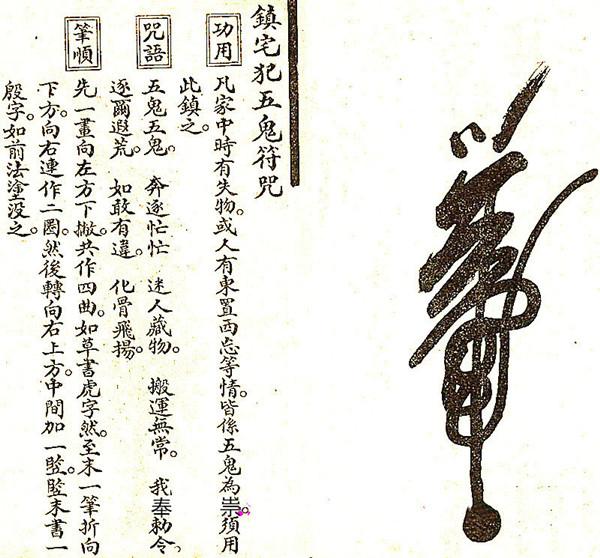 鎮宅犯五鬼符咒
功用
凡家中時有失物。或人有東置西忘等情。皆係五鬼為祟。須用
此鎮之。
咒語
五鬼五鬼。 奔逐忙忙 迷人藏物。 搬運無常。 我奉勅令。
逐爾遐荒。 如敢有違。 化骨飛揚。
筆順
先一畫向左方下撇。共作四曲。如草書虎字然。至末一筆折向
下方。向右連作二圈。然後轉向右上方。中間加一竪。竪末書一
殷字。如前法塗没之。